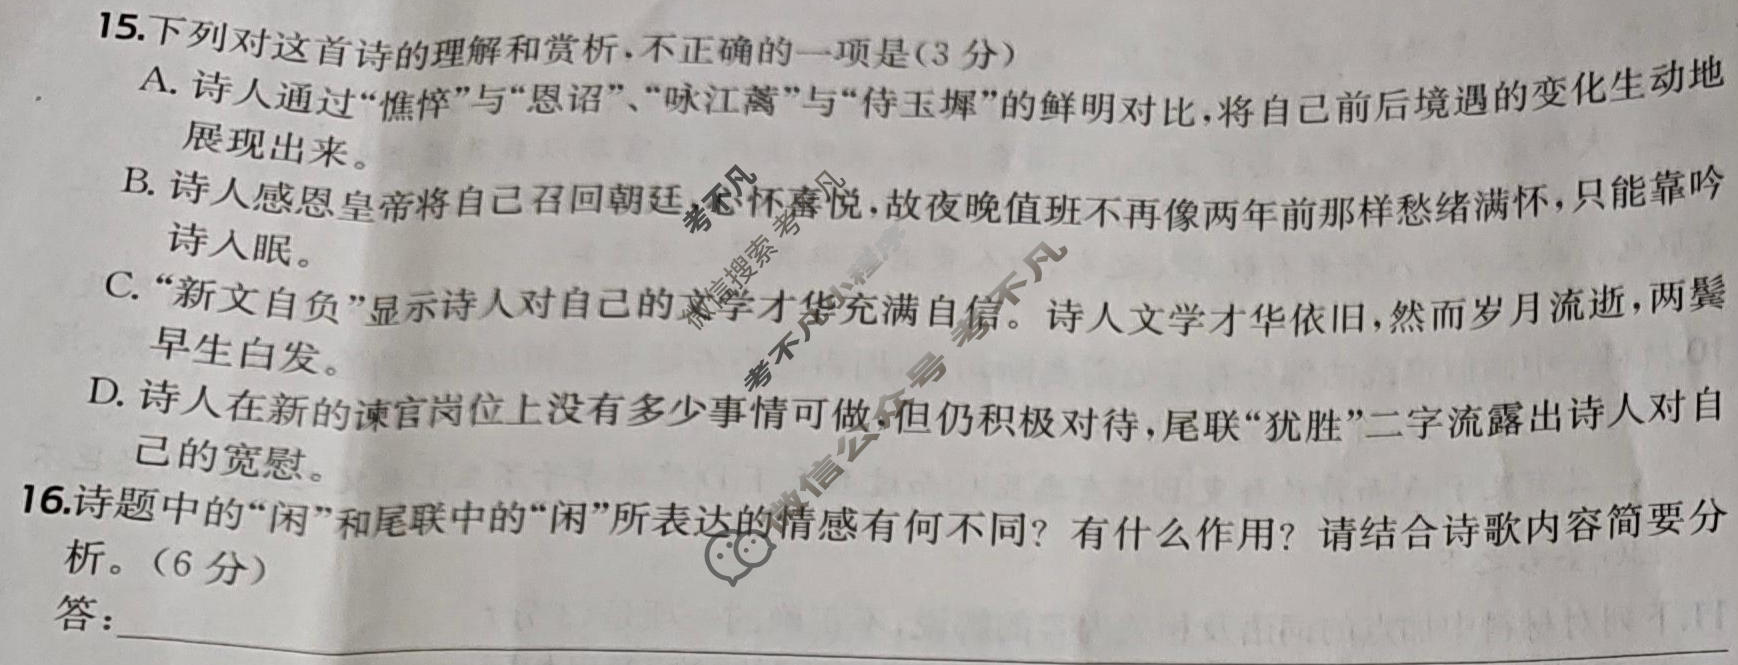 15.下列对这首诗的理解和赏析,不正确的一项是(3分)
A. 诗人通过“憔悴”与“恩诏”、“咏江蓠”与“侍玉墀”的鲜明对比,将自己前后境遇的变化生动地
展现出来。
B. 诗人感恩皇帝将自己召回朝廷,心怀喜悦,故夜晚值班不再像两年前那样愁绪满怀,只能靠吟
诗入眠。
C. “新文自负”显示诗人对自己的文学才华充满自信。诗人文学才华依旧,然而岁月流逝,两鬓
早生白发。
D. 诗人在新的谏官岗位上没有多少事情可做,但仍积极对待,尾联“犹胜”二字流露出诗人对自
己的宽慰。
16.诗题中的“闲”和尾联中的“闲”所表达的情感有何不同?有什么作用?请结合诗歌内容简要分
析。(6分)
答:
考不凡
微信搜索 考不凡
考不凡 小程序
微信公众号 考不凡